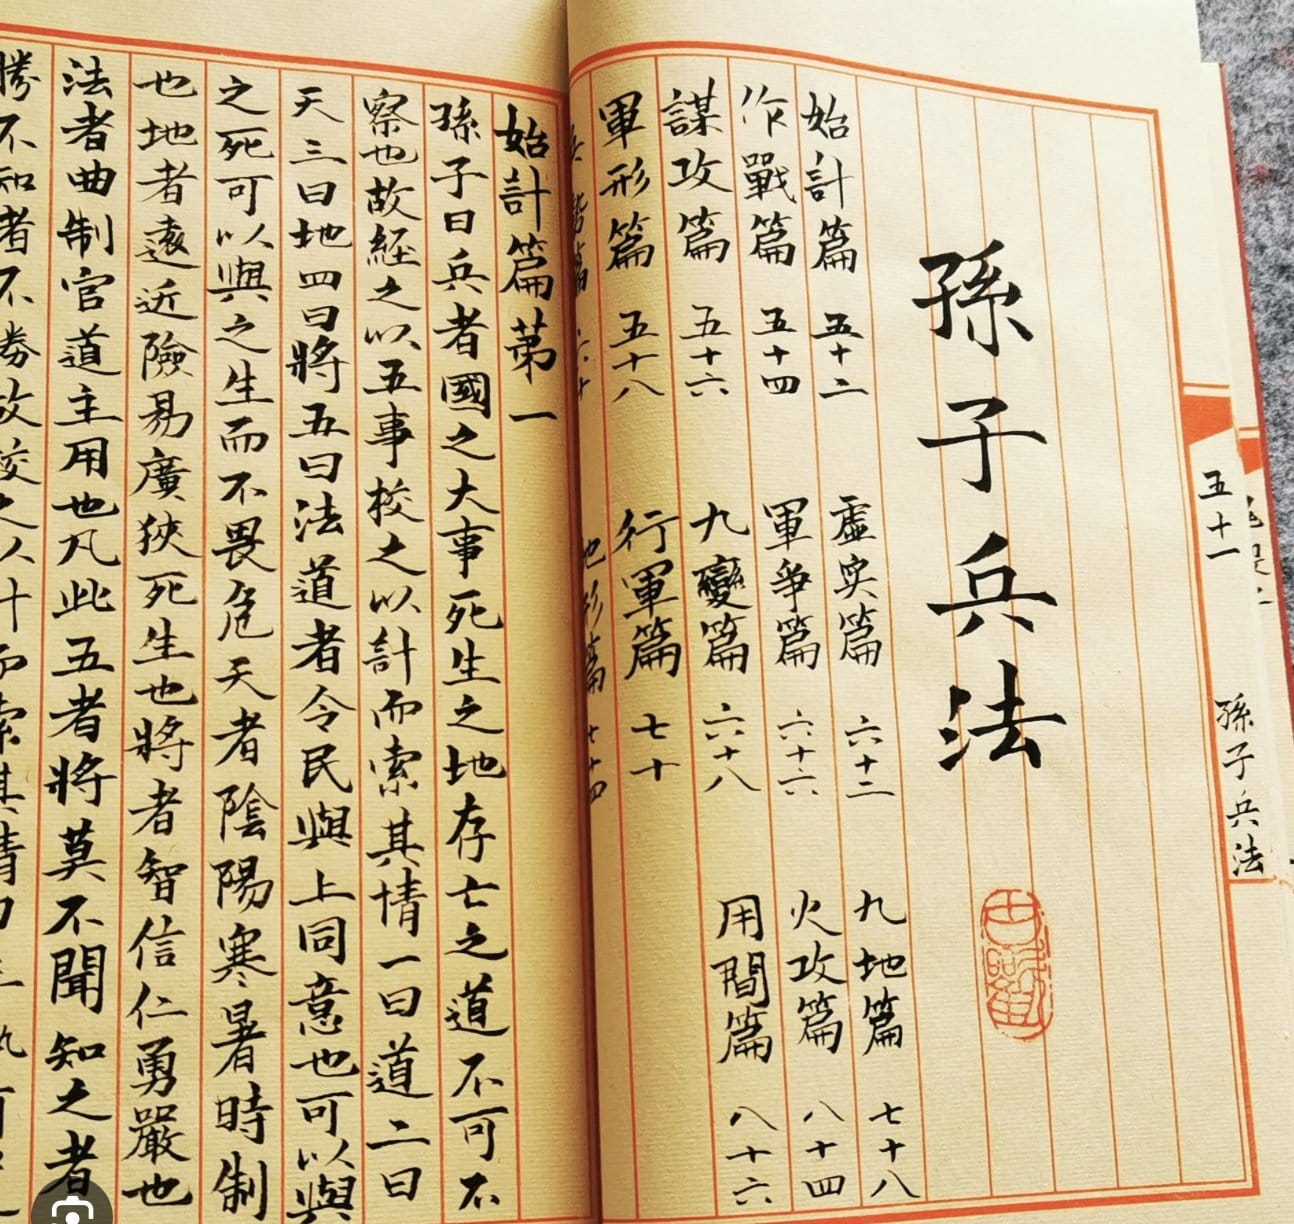 五十一 孫子兵法
孫子兵法
始計篇 五十二 虛实篇 六十二 九地篇 七十八
作戰篇 五十四 軍爭篇 六十六 火攻篇 八十四
謀攻篇 五十六 九變篇 六十八 用間篇 八十六
軍形篇 五十八 行軍篇 七十
篇 六十 地形篇 七十四
始計篇苐一
孫子曰兵者國之大事死生之地存亡之道不可不
察也故経之以五事校之以計而索其情一曰道二曰
天三曰地四曰將五曰法道者令民與上同意也可以與
之死可以與之生而不畏危天者陰陽寒暑時制
也地者遠近險易廣狹死生也將者智信仁勇嚴也
法者曲制官道主用也凡此五者將莫不聞知之者
勝不知者不勝故校之以計而索其情